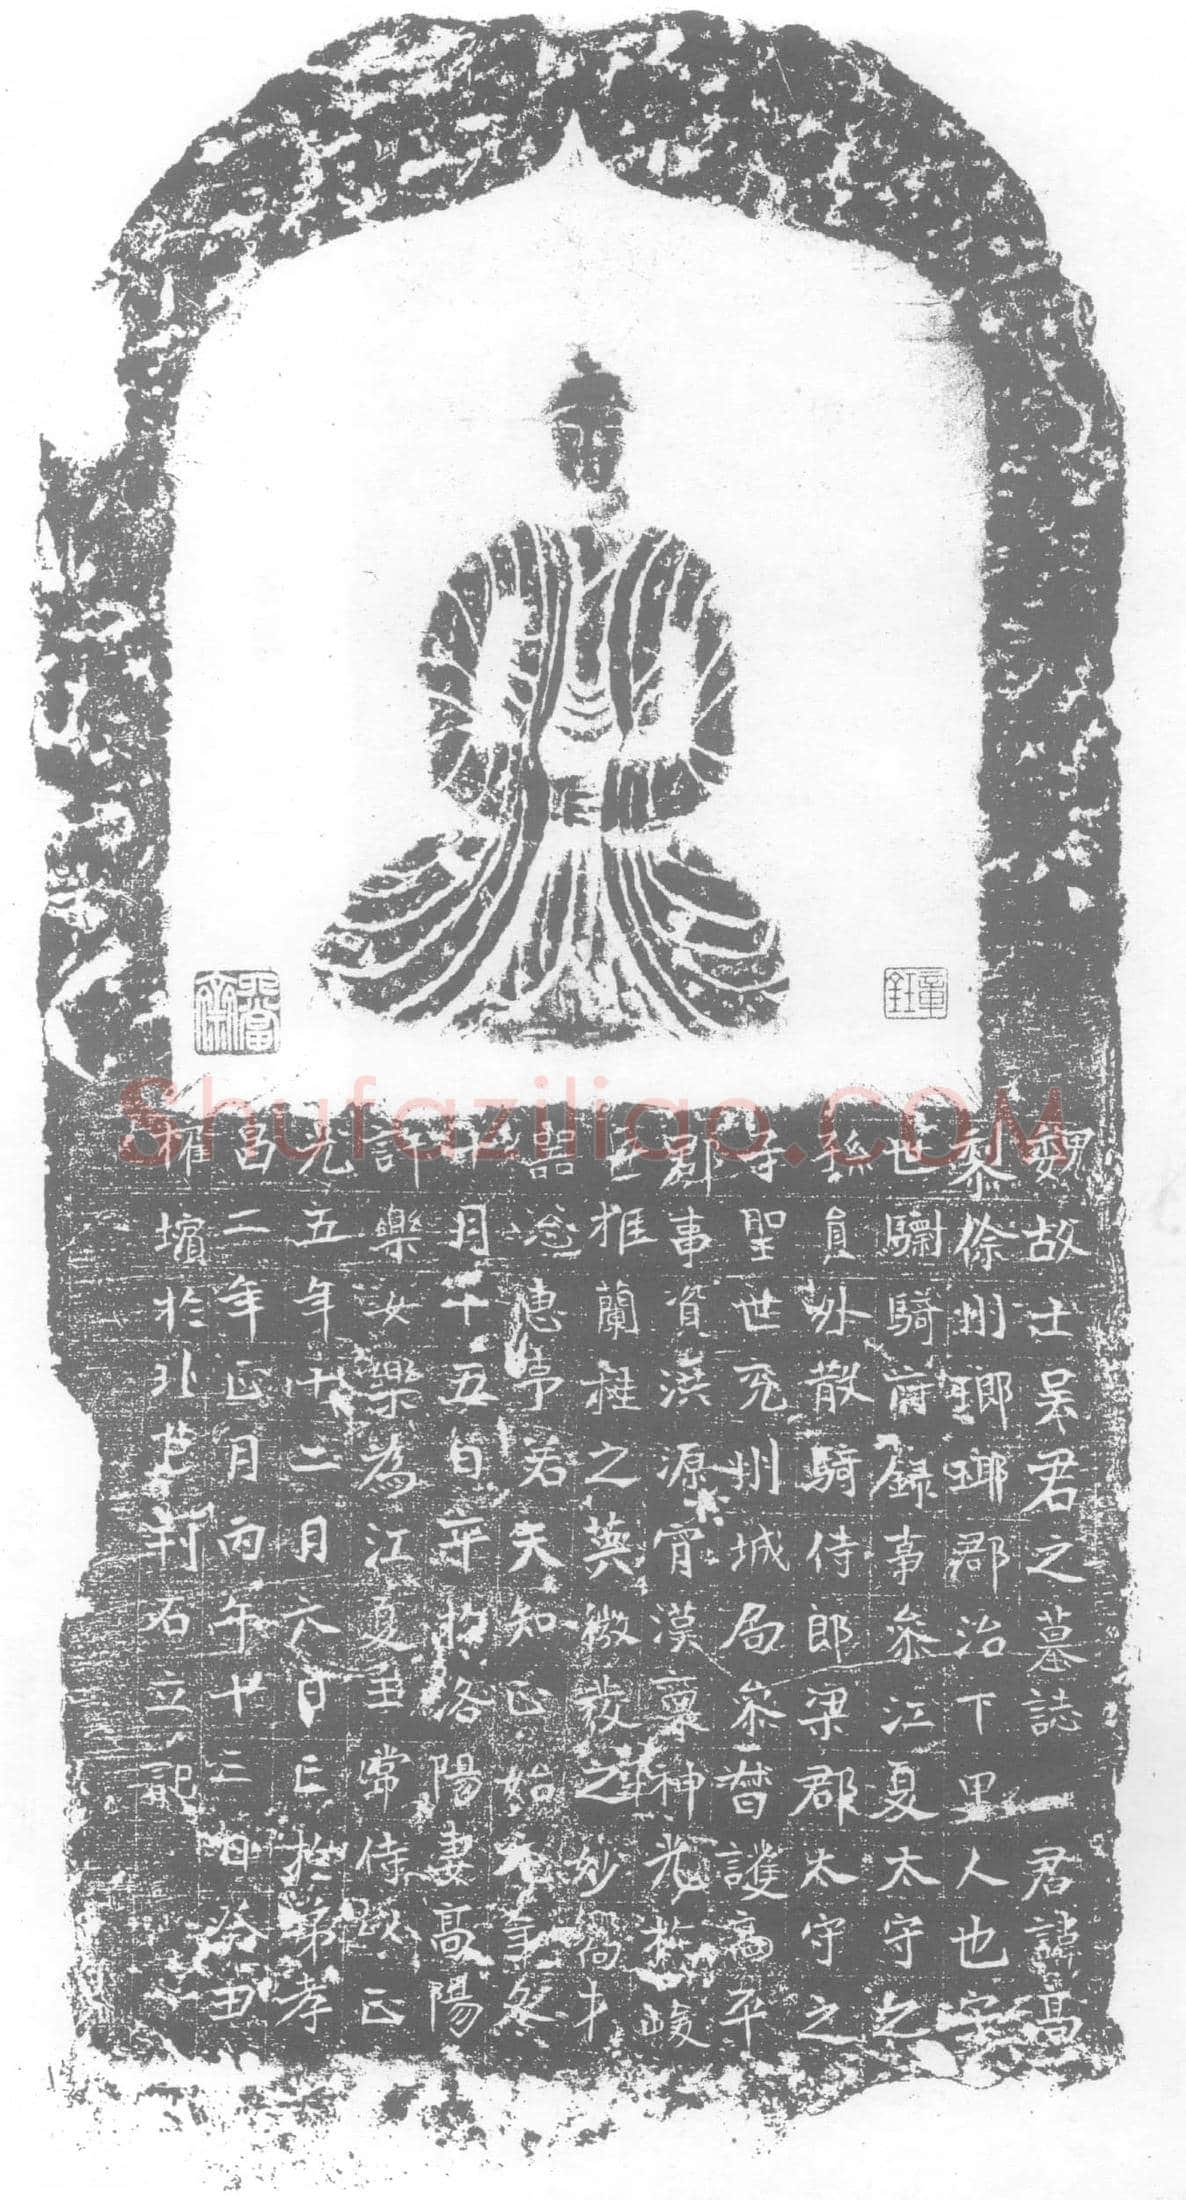 魏故士吳君之墓誌一君諱高
黎徐州瑯琊郡治下里人也宋
世驃騎府錄事叅江夏太守之
孫員外散騎侍郎梁郡太守之
聖世兗州城局叅督護高平
郡事資洪源宵漢稟神光於峻
推蘭桂之英微發之妙儁才
器洽惠 若夫知正始 年冬
十月十五日卒於洛陽妻高陽
許樂女樂為江夏王常侍以正
光五年十二月六日亡於弟孝
昌二年正月丙午十三日合丑
權殯於北芒刊石立記
Shufaziliao.COM